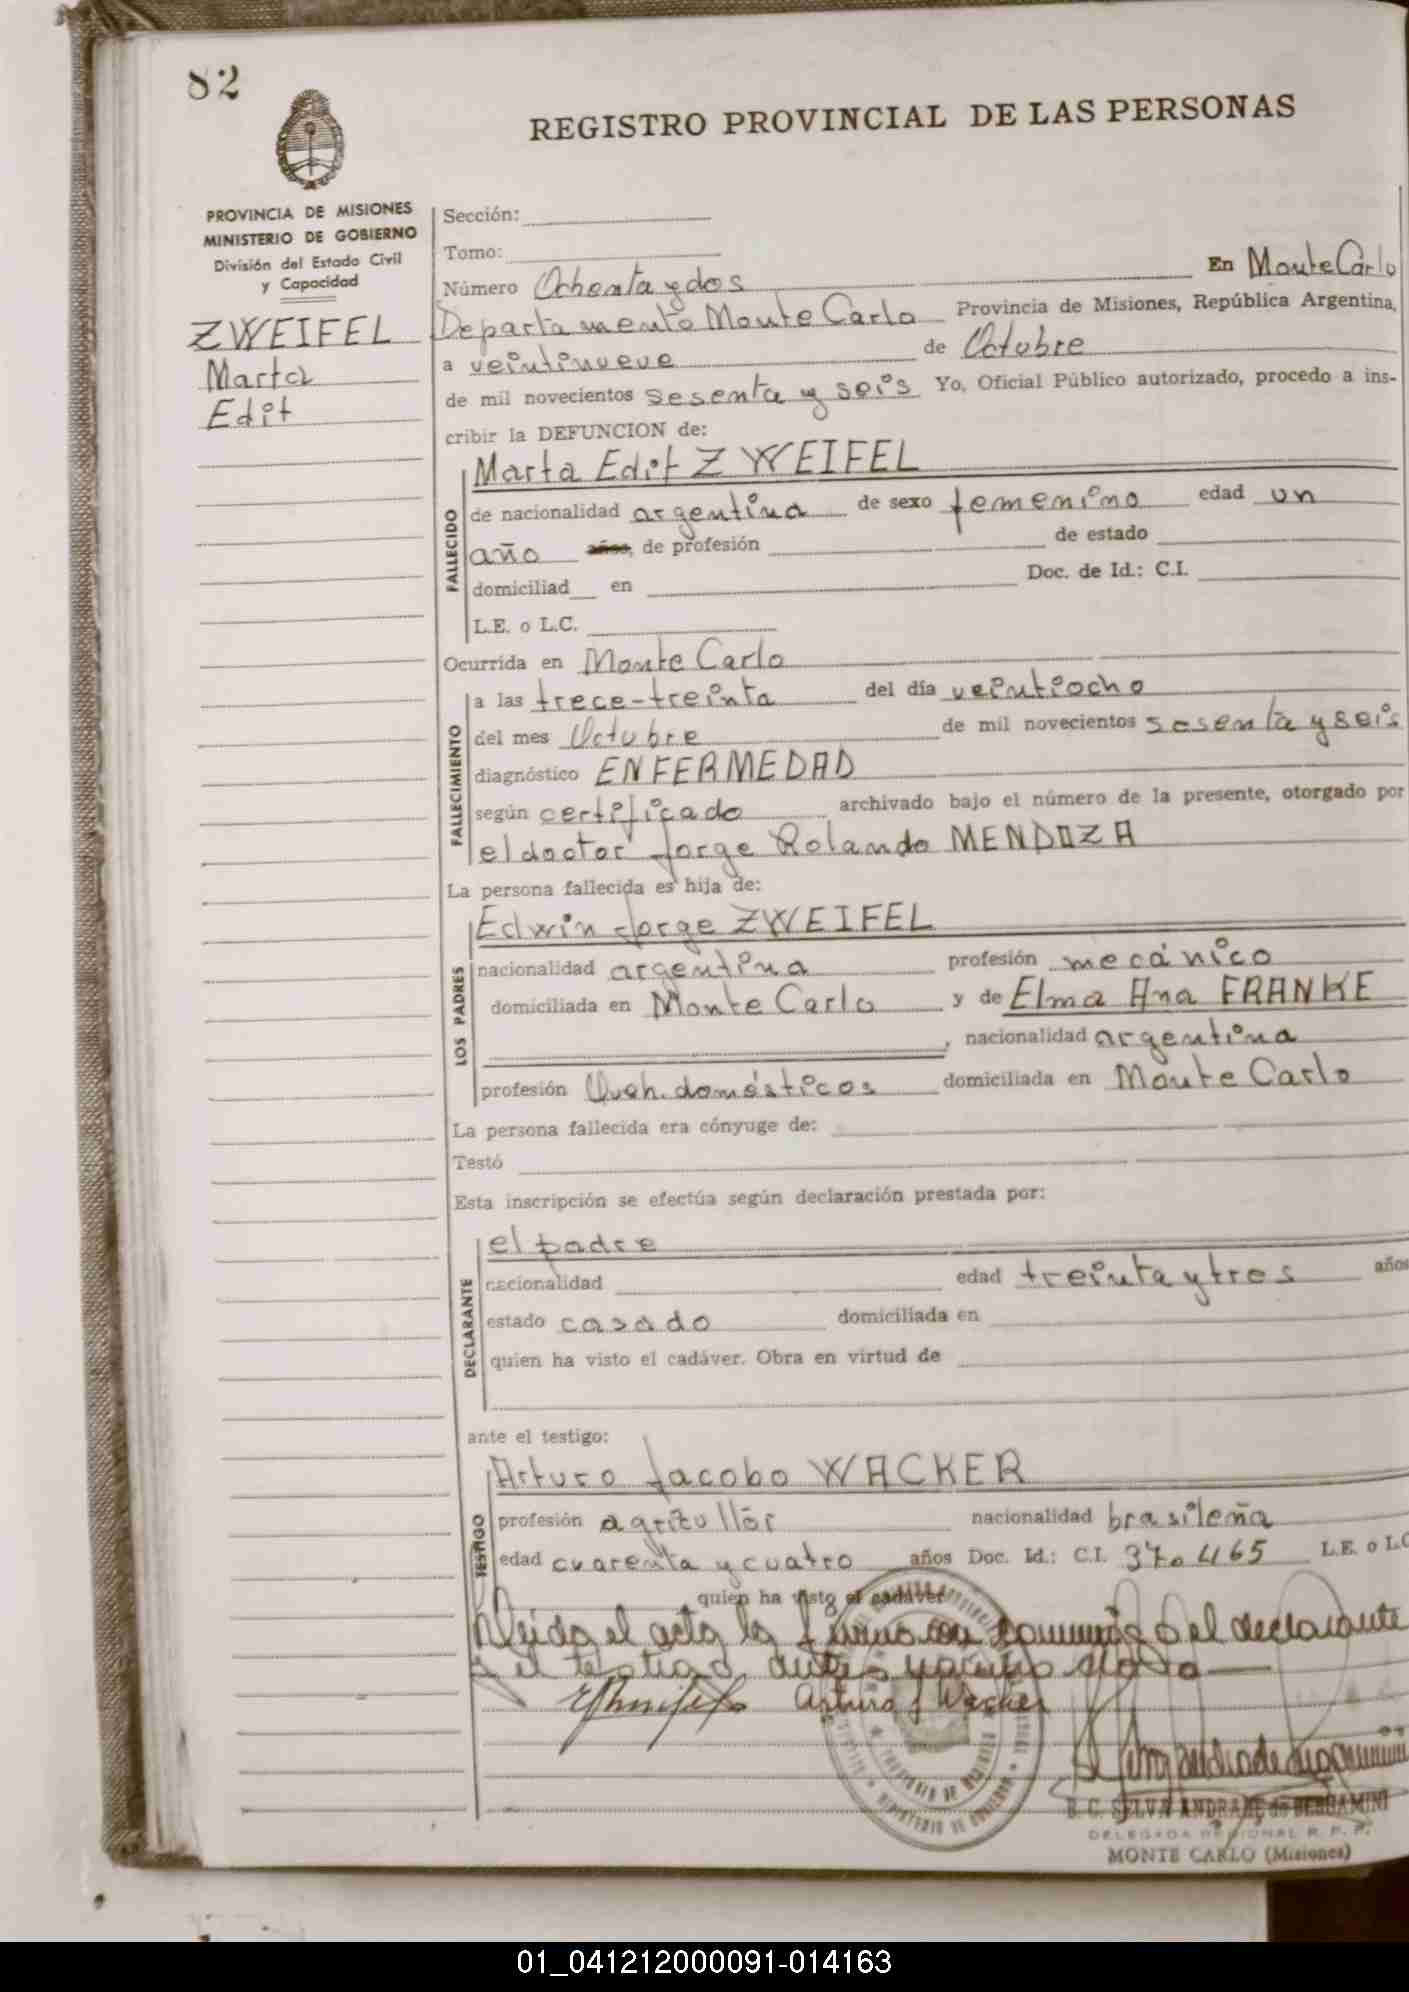 82
REGISTRO PROVINCIAL DE LAS PERSONAS
PROVINCIA DE MISIONES
MINISTERIO DE GOBIERNO
División del Estado Civil
y Capacidad
ZWEIFEL
Marta
Edit
Sección:
Tomo:
Número Ochenta y dos En Monte Carlo
Departamento Monte Carlo Provincia de Misiones, República Argentina,
a veintinueve de Octubre
de mil novecientos sesenta y seis Yo, Oficial Público autorizado, procedo a ins-
cribir la DEFUNCION de:
Marta Edit ZWEIFEL
FALLECIDO
de nacionalidad argentina de sexo femenino edad un
año años, de profesión de estado
domiciliad en Doc. de Id.: C.I.
L.E. o L.C.
Ocurrida en Monte Carlo
FALLECIMIENTO
a las trece-treinta del día veintiocho
del mes Octubre de mil novecientos sesenta y seis
diagnóstico ENFERMEDAD
según certificado archivado bajo el número de la presente, otorgado por
el doctor Jorge Rolando MENDOZA
La persona fallecida es hija de:
LOS PADRES
Edwin Jorge ZWEIFEL
nacionalidad argentina profesión mecánico
domiciliada en Monte Carlo y de Elma Ana FRANKE
, nacionalidad argentina
profesión Queh. domésticos domiciliada en Monte Carlo
La persona fallecida era cónyuge de:
Testó
Esta inscripción se efectúa según declaración prestada por:
DECLARANTE
el padre
nacionalidad edad treinta y tres años
estado casado domiciliada en
quien ha visto el cadáver. Obra en virtud de
ante el testigo:
TESTIGO
Arturo Jacobo WACKER
profesión agricultor nacionalidad brasileña
edad cuarenta y cuatro años Doc. Id.: C.I. 370465 L.E. o L.C
quien ha visto el cadáver
Leida el acta la firman con el declarante
y el testigo
Arturo J Wacker
B. C. SELVA ANDRADE de BERGAMINI
DELEGADA REGIONAL R. P. P.
MONTE CARLO (Misiones)
01_041212000091-014163